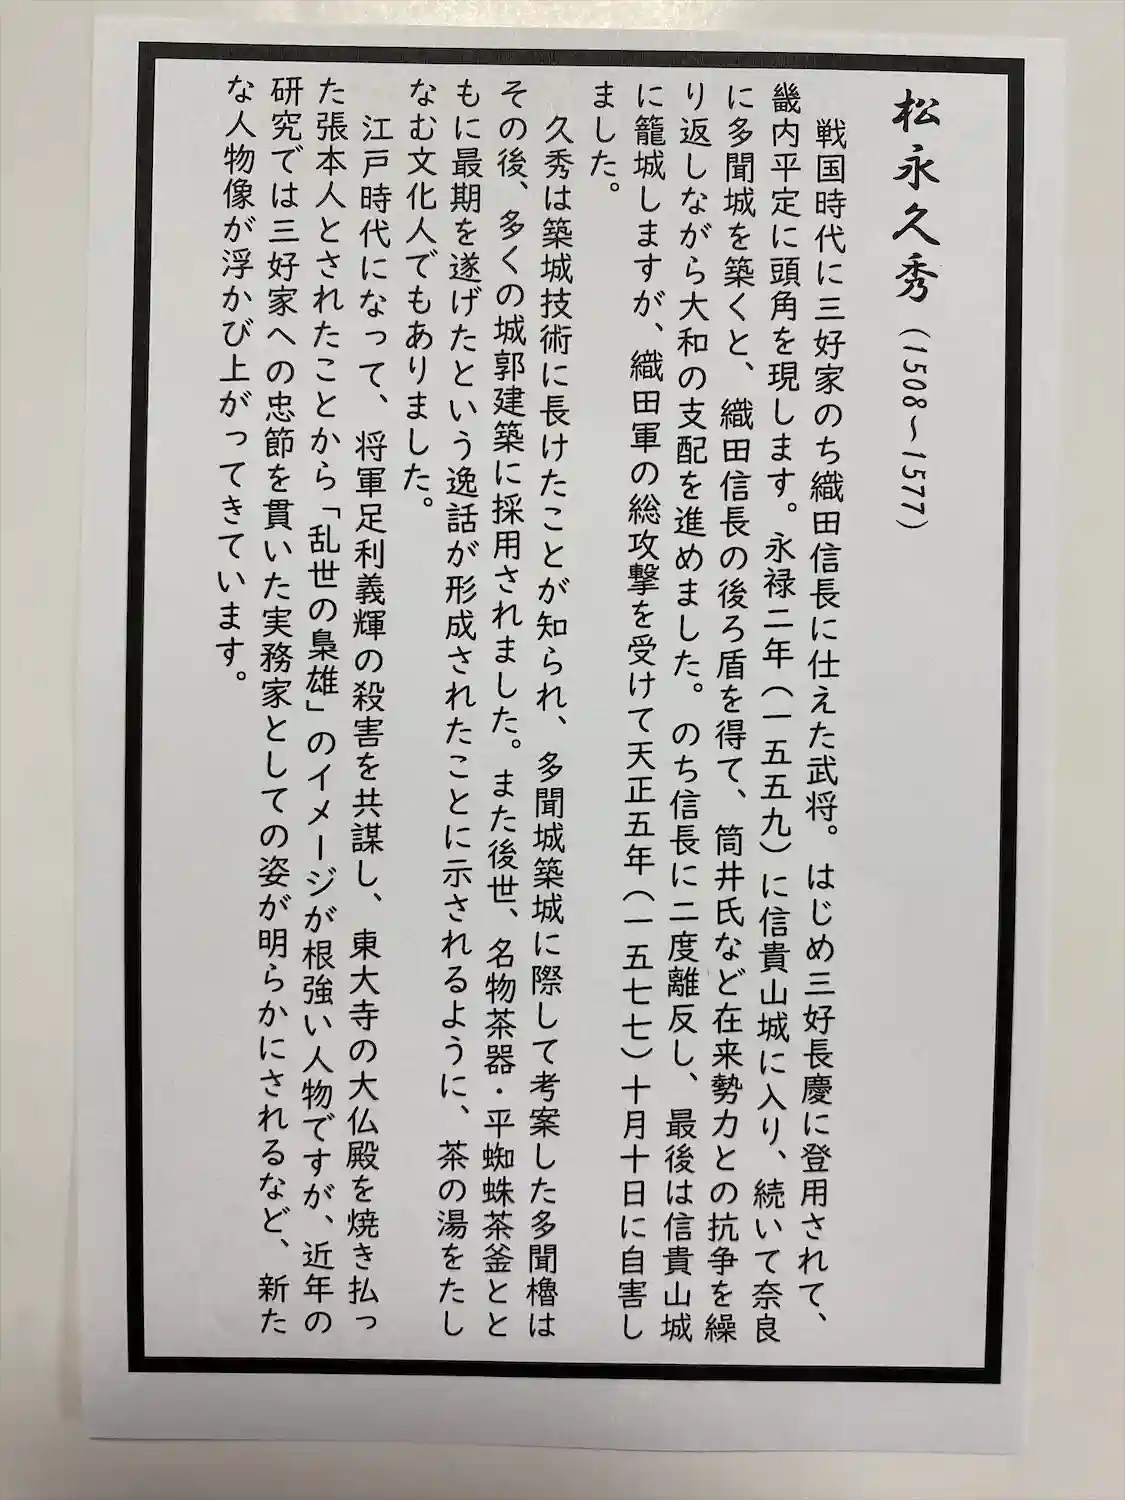 松永久秀(1508~1577)
戦国時代に三好家のち織田信長に仕えた武将。はじめ三好長慶に登用されて、
畿内平定に頭角を現します。永禄二年(一五五九)に信貴山城に入り、続いて奈良
に多聞城を築くと、織田信長の後ろ盾を得て、筒井氏など在来勢力との抗争を繰
り返しながら大和の支配を進めました。のち信長に二度離反し、最後は信貴山城
に籠城しますが、織田軍の総攻撃を受けて天正五年(一五七七)十月十日に自害し
ました。
久秀は築城技術に長けたことが知られ、多聞城築城に際して考案した多聞櫓は
その後、多くの城郭建築に採用されました。また後世、名物茶器・平蜘蛛茶釜とと
もに最期を遂げたという逸話が形成されたことに示されるように、茶の湯をたし
なむ文化人でもありました。
江戸時代になって、将軍足利義輝の殺害を共謀し、東大寺の大仏殿を焼き払っ
た張本人とされたことから「乱世の梟雄」のイメージが根強い人物ですが、近年の
研究では三好家への忠節を貫いた実務家としての姿が明らかにされるなど、新た
な人物像が浮かび上がってきています。